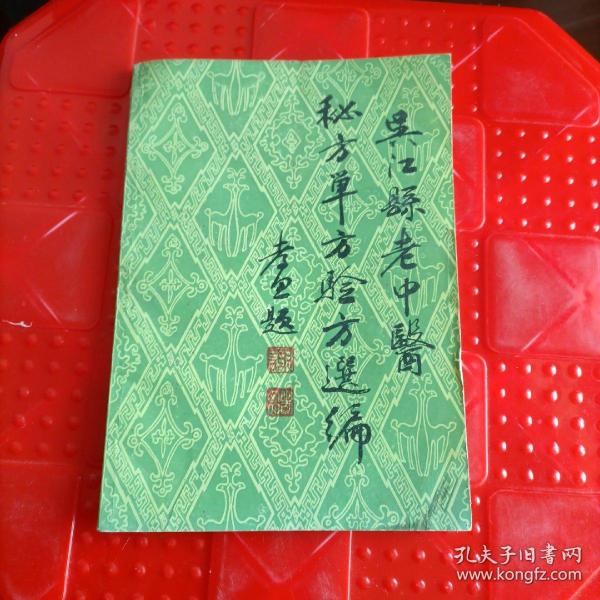 吴江縣老中醫
秘方单方验方選編
孝思题
孔夫子旧書网
www.kongfz.com